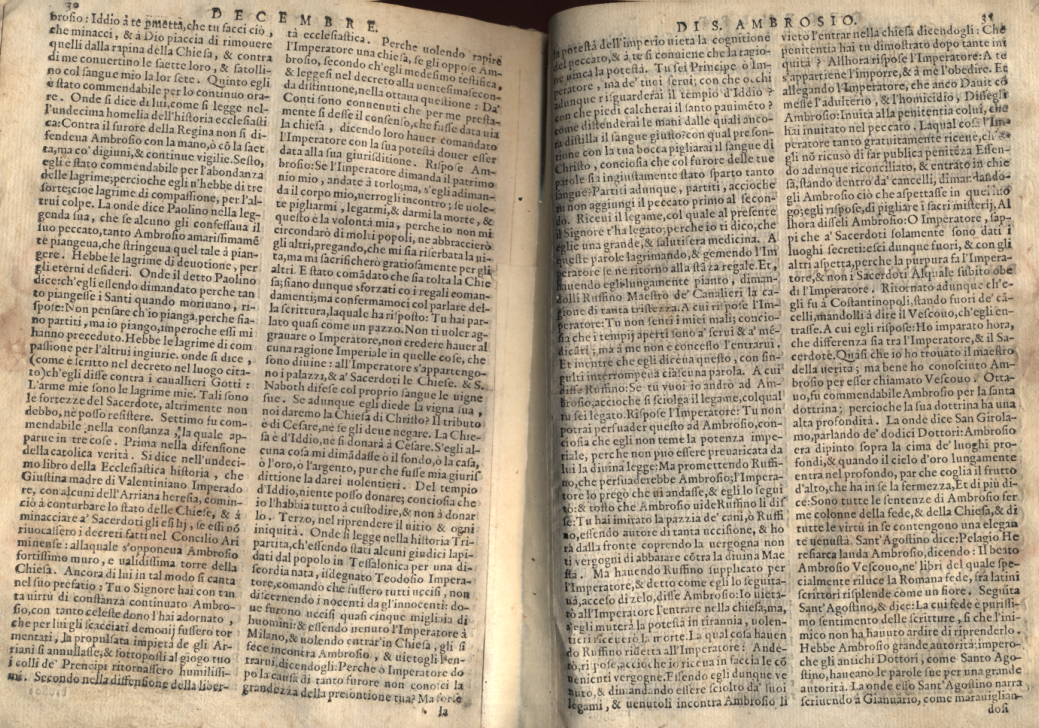 30
DECEMBRE.
brosio: Iddio à te pmetta, che tu facci ciò,
che minacci, & à Dio piaccia di rimouere
quelli dalla rapina della Chiesa, & contra
di me conuertino le saette loro, & satolli-
no col sangue mio la lor sete. Quinto egli
è stato commendabile per lo continuo ora-
re. Onde si dice di lui, come si legge nel-
l'undecima homelia dell'historia ecclesiasti
ca: Contra il furore della Regina non si di-
fendeua Ambrosio con la mano, ò cō la saet
ta, ma co' digiuni, & continue vigilie. Sesto,
egli è stato commendabile per l'abondanza
delle lagrime; percioche egli n'hebbe di tre
sorte; cioè lagrime di compassione, per l'al-
trui colpe. La onde dice Paolino nella leg-
genda sua, che se alcuno gli confessaua il
suo peccato, tanto Ambrosio amarissimamē
te piangeua, che stringeua quel tale à pian-
gere. Hebbe le lagrime di deuotione, per
gli eterni desideri. Onde il detto Paolino
dice: ch'egli essendo dimandato perche tan
to piangesse i Santi quando moriuano, ri-
spose: Non pensare ch'io pianga, perche sia-
no partiti, ma io piango, imperoche essi mi
hanno preceduto. Hebbe le lagrime di com
passione per l'altrui ingiurie. onde si dice,
(come è scritto nel decreto nel luogo cita-
to) ch'egli disse contra i cauallieri Gotti:
L'arme mie sono le lagrime mie. Tali sono
le fortezze del Sacerdote, altrimente non
debbo, nè posso resistere. Settimo fu com-
mendabile nella constanza, la quale ap-
parue in tre cose. Prima nella difensione
della catolica verità. Si dice nell'undeci-
mo libro della Ecclesiastica historia, che
Giustina madre di Valentiniano Imperado
re, con alcuni dell'Arriana heresia, comin-
ciò à conturbare lo stato delle Chiese, & à
minacciare a' Sacerdoti gli essilij, se essi nō
riuocassero i decreti fatti nel Concilio Ari
minense: allaquale s'opponeua Ambrosio
fortissimo muro, e ualidissima torre della
Chiesa. Ancora di lui in tal modo si canta
nel suo prefatio: Tu o Signore hai con tan
ta uirtù di constanza continuato Ambro-
sio, con tanto celeste dono l'hai adornato,
che per lui gli scacciati demonij fussero tor
mentati, la propulsata impietà de gli Ar-
riani si annullasse, & sottoposti al giogo tuo
i colli de' Prencipi ritornassero humilissi-
mi. Secondo nella diffensione della liber-
tà ecclesiastica. Perche uolendo rapire
l'Imperatore una chiesa, se gli oppose Am-
brosio, secondo ch'egli medesimo testifica,
& leggesi nel decreto alla uentesimasecon-
da distintione, nella ottaua questione: Da'
Conti sono conuenuti che per me presta-
mente si desse il consenso, che fusse data uia
la chiesa, dicendo loro hauer comandato
l'Imperatore con la sua potestà douer esser
data alla sua giurisditione. Rispose Am-
brosio: Se l'Imperatore dimanda il patrimo
nio mio, andate à torlo; ma, s'egli adiman-
da il corpo mio, uerrogli incontro; se uole-
te pigliarmi, legarmi, & darmi la morte, &
questo è la volontà mia, perche io non mi
circondarò di molti popoli, ne abbracciero
gli altri, pregando, che mi sia riserbata la ui-
ta, ma mi sacrifichero gratiosamente per gli
altri. E stato comādato che sia tolta la Chie
sa; siano dunque sforzati co i regali coman-
damenti; ma confermamoci col parlare del-
la scrittura, laquale ha risposto: Tu hai par-
lato quasi come un pazzo. Non ti uoler ag-
grauare o Imperatore, non credere hauer al
cuna ragione Imperiale in quelle cose, che
sono diuine: all'Imperatore s'appartengo-
no i palazzi, & a' Sacerdoti le Chiese. & S.
Naboth difese col proprio sangue le uigne
sue. Se adunque egli diede la vigna sua,
noi daremo la Chiesa di Christo? Il tributo
è di Cesare, nè se gli deue negare. La Chie-
sa è d'Iddio, ne si donarà à Cesare. S'egli al-
cuna cosa mi dimādasse ò il fondo, ò la casa,
ò l'oro, ò l'argento, pur che fusse mia giuris
dittione la darei uolentieri. Del tempio
d'Iddio, niente posso donare; conciosia che
io l'habbia tutto à custodire, & non à donar
lo. Terzo, nel riprendere il uitio & ogni
iniquità. Onde si legge nella historia Tri-
partita, ch'essendo stati alcuni giudici lapi-
dati dal popolo in Tessalonica per una di-
scordia nata, isdegnato Teodosio Impera-
tore, comandò che fussero tutti uccisi, non
discernendo i nocenti da gl'innocenti: do-
ue furono uccisi quasi cinque migliaia di
huomini: & essendo uenuto l'Imperatore à
Milano, & uolendo entrar'in Chiesa, gli si
fece incontra Ambrosio, & uietogli l'en-
trarui, dicendogli: Perche ò Imperatore do
po la causa di tanto furore non conosci la
grandezza della presontione tua? Ma forse
la
DI S. AMBROSIO.
31
la potestà dell'imperio uieta la cognitione
del peccato, & à te si conuiene che la ragio-
ne uinca la potestà. Tu sei Prencipe ò Im-
peratore, ma de' tuoi serui; con che occhi
adunque risguarderai il tempio d'Iddio?
con che piedi calcherai il santo pauimēto?
come distenderai le mani dalle quali anco-
ra distilla il sangue giusto? con qual preson-
tione con la tua bocca pigliarai il sangue di
Christo, conciosia che col furore delle tue
parole sia ingiustamente stato sparto tanto
sangue? Partiti adunque, partiti, accioche
tu non aggiungi il peccato primo al secon-
do. Riceui il legame, col quale al presente
il Signore t'ha legato; perche io ti dico, che
egli è una grande, & salutifera medicina. A
queste parole lagrimando, & gemendo l'Im
peratore se ne ritornò alla stāza regale. Et,
hauendo egli lungamente pianto, diman-
dolli Ruffino Maestro de' Cauallieri la ca-
gione di tanta tristezza. A cui rispose l'Im-
peratore: Tu non senti i miei mali; concio-
sia che i tempij aperti sono a' serui & a' mē-
dicāti; ma à me non è concesso l'entrarui.
Et mentre che egli diceua questo, con sin-
gulti interrompeua ciascuna parola. A cui
disse Ruffino: Se tu vuoi io andrò ad Am-
brosio, accioche ti sciolga il legame, col qual
tu sei legato. Rispose l'Imperatore: Tu non
potrai persuader questo ad Ambrosio, con-
ciosia che egli non teme la potenza impe-
riale, perche non può essere preuaricata da
lui la diuina legge: Ma promettendo Ruffi-
no, che persuaderebbe Ambrosio; l'Impera-
tore lo pregò che ui andasse, & egli lo segui
tò: & tosto che Ambrosio uide Ruffino li dis
se: Tu hai imitato la pazzia de' cani, ò Ruffi
no, essendo autore di tanta uccisione, & ho
rà dalla fronte coprendo la uergogna non
ti vergogni di abbaiare cōtra la diuina Mae
stà. Ma hauendo Ruffino supplicato per
l'Imperatore, & detto come egli lo seguita-
ua, acceso di zelo, disse Ambrosio: Io uieta-
rò all'Imperatore l'entrare nella chiesa; ma,
s'egli muterà la potestà in tirannia, uolen-
tieri riceuerò la morte. La qual cosa hauen
do Ruffino ridetta all'Imperatore: Ande-
rò, rispose, accioche io riceua in faccia le cō
uenienti vergogne. Essendo egli dunque ve
nuto, & dimandando essere sciolto da' suoi
legami, & uenutoli incontra Ambrosio li
vieto l'entrar nella chiesa dicendogli: Che
penitentia hai tu dimostrato dopo tante ini
quità? Allhora rispose l'Imperatore: A te
s'appartiene l'imporre, & à me l'obedire. Et
allegando l'Imperatore, che anco Dauit cō
messe l'adulterio, & l'homicidio, Dissegli
Ambrosio: Inuita alla penitentia colui, che
hai inuitato nel peccato. Laqual cosa l'Im-
peratore tanto gratuitamente riceue, ch'e-
gli nō ricusò di far publica penitēza. Essen-
do adunque riconciliato, & entrato in chie
sa, stando dentro da' cancelli, dimandando-
gli Ambrosio ciò che aspettasse in quel luo-
go; egli rispose, di pigliare i sacri misterij. Al
lhora disseli Ambrosio: O Imperatore, sap-
pi che a' Sacerdoti solamente sono dati i
luoghi secreti: esci dunque fuori, & con gli
altri aspetta, perche la purpura fa l'Impera-
tore, & non i Sacerdoti. Alquale subito obe
dì l'Imperatore. Ritornato adunque ch'e-
gli fu à Costantinopoli, stando fuori de' cā-
celli, mandolli à dire il Vescouo, ch'egli en-
trasse. A cui egli rispose: Ho imparato hora,
che differenza sia tra l'Imperatore, & il Sa-
cerdote. Quasi che io ho trouato il maestro
della uerità; ma bene ho conosciuto Am-
brosio per esser chiamato Vescouo. Otta-
uo, fu commendabile Ambrosio per la santa
dottrina; percioche la sua dottrina ha una
alta profondità. La onde dice San Girola-
mo, parlando de' dodici Dottori: Ambrosio
era dipinto sopra la cima de' luoghi pro-
fondi, & quando il cielo d'oro lungamente
entra nel profondo, par che coglia il frutto
d'alto, che ha in se la fermezza, Et di più di-
ce: Sono tutte le sentenze di Ambrosio fer
me colonne della fede, & della Chiesa, & di
tutte le virtù in se contengono una elegan
te uenustà. Sant'Agostino dice: Pelagio He
resiarca lauda Ambrosio, dicendo: Il beato
Ambrosio Vescouo, ne' libri del quale spe-
cialmente riluce la Romana fede, fra latini
scrittori risplende come un fiore. Seguita
Sant'Agostino, & dice: La cui fede è purissi-
mo sentimento delle scritture, sì che l'ini-
mico non ha hauuto ardire di riprenderlo.
Hebbe Ambrosio grande autorità; impero-
che gli antichi Dottori, come Santo Ago-
stino, haueano le parole sue per una grande
autorità. La onde esso Sant'Agostino narra
scriuendo à Gianuario, come marauiglian-
dosi